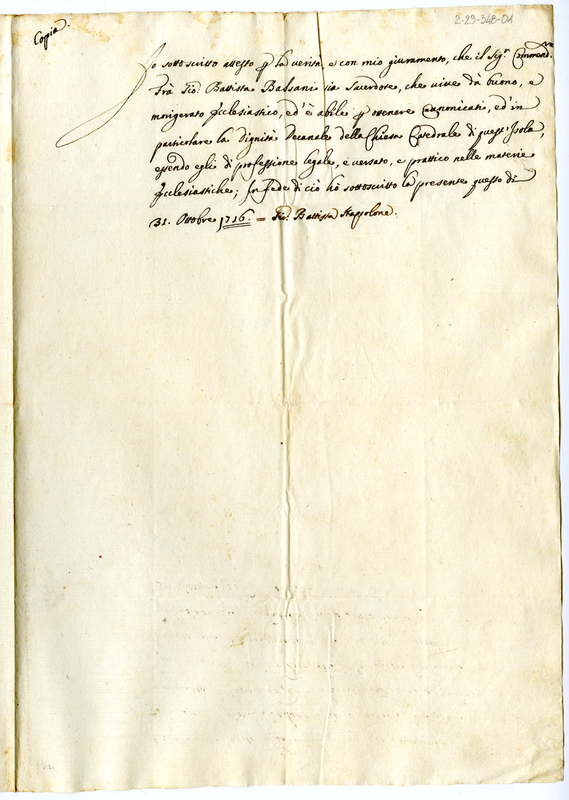 2-29-348-01
Copia.
Io sottoscritto attesto p la verità, e con mio giuramento, che il Sig.r Commend.re
Frà Gio. Battista Bassani sia Sacerdote, che vive dà buono, e
morigerato Ecclesiastico, ed' è abile p ottenere Canonicati, ed in
particolare la Dignità Decanale della Chiesa Catedrale di quest' Isola,
essendo egli di professione legale, e versato, e prattico nelle materie
Ecclesiastiche; In Fede di ciò hò sottoscritto la presente questo dì
31. Ottobre 1716. = Gio. Battista